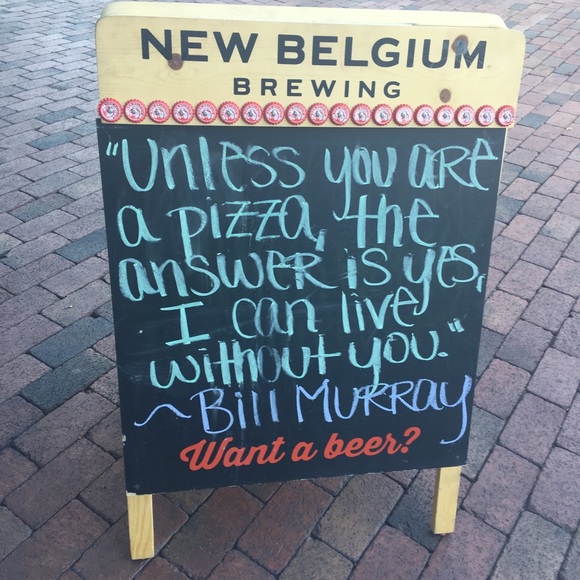 NEW BELGIUM
BREWING
"Unless you are
a pizza, the
answer is yes,
I can live
without you."
~ Bill Murray
Want a beer?